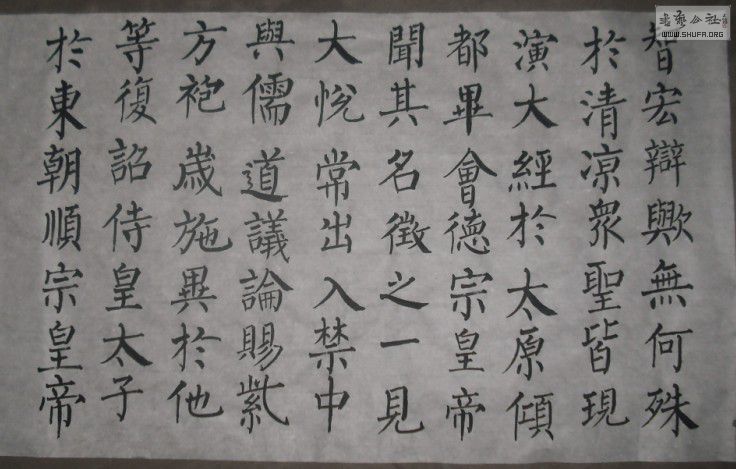 智宏辯歟無何殊
於清凉眾聖皆現
演大經於太原傾
都畢會德宗皇帝
聞其名徵之一見
大悅常出入禁中
與儒道議論賜紫
方袍歲施異於他
等復詔侍皇太子
於東朝順宗皇帝
書藝公社
WWW.SHUFA.ORG